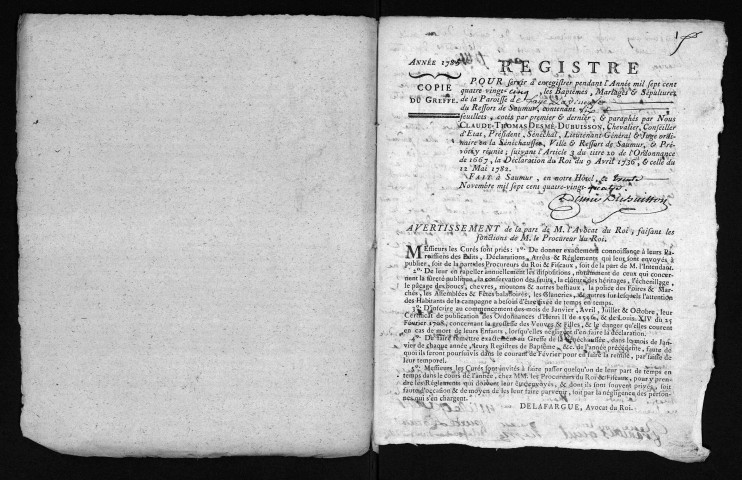 ANNÉE 1785
COPIE
DU GREFFE.
REGISTRE
POUR servir à enregistrer pendant l'Année mil sept cent
quatre-vingt-cinq, les Baptêmes, Mariages & Sépultures
de la Paroisse de
du Ressort de Saumur, contenant
feuillets, cotés par premier & dernier, & paraphés par Nous
CLAUDE-THOMAS DESMÉ-DUBUISSON, Chevalier, Conseiller
d'Etat, Président, Sénéchal, Lieutenant Général & Juge ordi-
naire en la Sénéchaussée, Ville & Ressort de Saumur, & Pré-
vôté y réunie; suivant l'Article 3 du titre 20 de l'Ordonnance
de 1667, la Déclaration du Roi du 9 Avril 1736, & celle du
12 Mai 1782.
FAIT à Saumur, en notre Hôtel, le trente
Novembre mil sept cent quatre-vingt-quatre.
Desmé Dubuisson
AVERTISSEMENT de la part de M. l'Avocat du Roi, faisant les
fonctions de M. le Procureur du Roi.
MEssieurs les Curés sont priés: 1°. De donner exactement connoissance à leurs Pa-
roissiens des Edits, Déclarations, Arrêts & Réglements qui leur sont envoyés à
publier, soit de la part des Procureurs du Roi & Fiscaux, soit de la part de M. l'Intendant.
2°. De leur en rappeller annuellement les dispositions, notamment de ceux qui concer-
nent la sûreté publique, la conservation des fruits, la clôture des héritages, l'échenillage,
le pacage des boucs, chevres, moutons & autres bestiaux, la police des Foires & Mar-
chés, les Assemblées & Fêtes baladoires, les Glaneries, & autres sur lesquels l'attention
des Habitants de la campagne a besoin d'être fixée de temps en temps.
3°. D'inscrire au commencement des mois de Janvier, Avril, Juillet & Octobre, leur
Certificat de publication des Ordonnances d'Henri II de 1556, & de Louis XIV du 25
Février 1708, concernant la grossesse des Veuves & Filles, & le danger qu'elles courent
en cas de mort de leurs Enfants, lorsqu'elles négligent d'en faire la déclaration.
4°. De faire remettre exactement au Greffe de la Sénéchaussée, dans le mois de Jan-
vier de chaque année, leurs Registres de Baptême, &c. de l'année précédente, faute de
quoi ils seront poursuivis dans le courant de Février pour en faire la remise, par saisie de
leur temporel.
5°. Messieurs les Curés sont invités à faire passer quelqu'un de leur part de temps en
temps dans le cours de l'année, chez MM. les Procureurs du Roi & Fiscaux, pour y pren-
dre les Réglements qui doivent leur être envoyés, & dont ils sont souvent privés, soit
faute d'occasion & de moyen de les leur faire parvenir, soit par la négligence des person-
nes qui s'en chargent.
DELAFARGUE, Avocat du Roi.